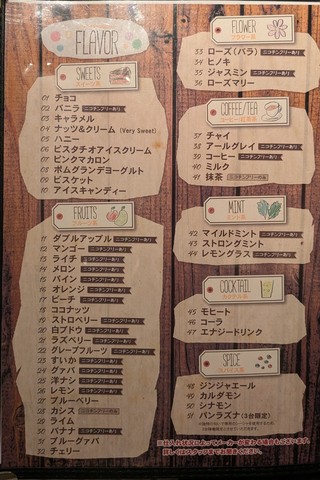 FLAVOR
SWEETS
01 チョコ
02 バニラ ニコチンフリーあり
03 キャラメル
04 ナッツ&クリーム (Very Sweet)
05 ハニー
06 ピスタチオアイスクリーム
07 ピンクマカロン
08 ポムグランデヨーグルト
09 ビスケット
10 アイスキャンディー
FRUITS
フルーツ系
11 ダブルアップル ニコチンフリーあり
12 マンゴー ニコチンフリーあり
13 ライチ ニコチンフリーあり
14 メロン ニコチンフリーあり
15 パイン ニコチンフリーあり
16 オレンジ ニコチンフリーあり
17 ピーチ ニコチンフリーあり
18 ココナッツ
19 ストロベリー ニコチンフリーあり
20 白ブドウ ニコチンフリーあり
21 ラズベリー ニコチンフリーあり
22 グレープフルーツ ニコチンフリーあり
23 すいか ニコチンフリーあり
24 グァバ ニコチンフリーあり
25 洋ナシ ニコチンフリーあり
26 レモン ニコチンフリーあり
27 ブルーベリー
28 カシス
29 ライム
30 バナナ ニコチンフリーあり
31 ブルーグァバ
32 チェリー
FLOWER
フラワー系
33 ローズ(バラ) ニコチンフリーあり
34 ヒノキ
35 ジャスミン ニコチンフリーあり
36 ローズマリー
COFFEE/TEA
コーヒー・紅茶系
37 チャイ
38 アールグレイ ニコチンフリーあり
39 コーヒー ニコチンフリーあり
40 ミルク
41 抹茶
MINT
ミント系
42 マイルドミント ニコチンフリーあり
43 ストロングミント
44 レモングラス ニコチンフリーあり
COCKTAIL
カクテル系
45 モヒート
46 コーラ
47 エナジードリンク
SPICE
スパイス系
48 ジンジャエール
49 カルダモン
50 シナモン
51 パンラズナ(3台限定)
※仕入れ状況によってメーカーが変わる場合もございます。
詳しくはスタッフまでお聞きください。